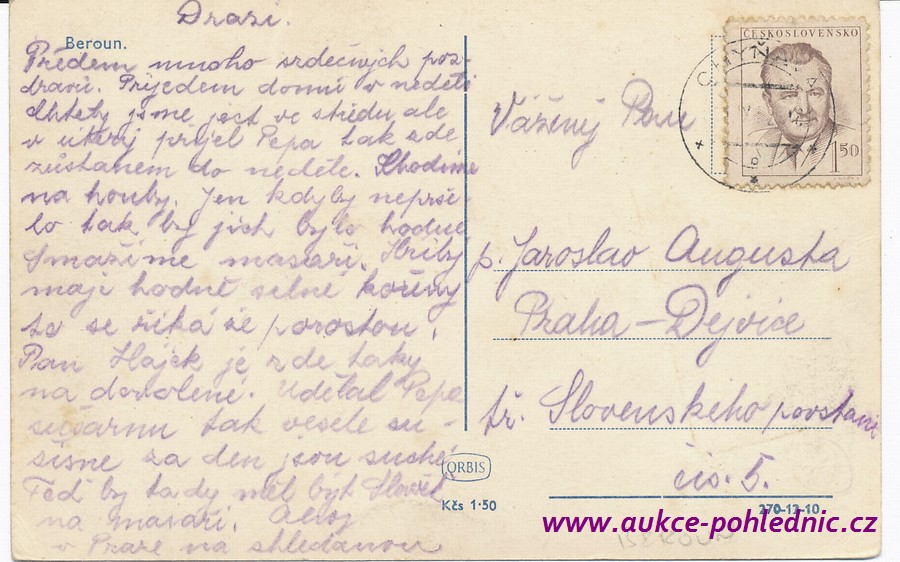 Drazí.
Beroun.
Předem mnoho srdečných poz-
dravů. Přijedem domů v neděli
chtěly jsme ject ve středu ale
v úterý přijel Pepa tak zde
zůstanem do neděle. Chodíme
na houby. Jen kdyby neprše-
lo tak by jich bylo hodně
Smažíme masaři. Hřiby
mají hodně silné kořeny
to se říká že porostou.
Pan Hajek je zde taky
na dovolené. Udělal Pepa
sušárnu tak vesele su-
šíme za den jsou suché.
Teď by tady měl být
na masaři. Ahoj
v Praze na shledanou
ORBIS
Kčs 1·50
ČESKOSLOVENSKO
1.50
Vážený Pan
p. Jaroslav Augusta
Praha-Dejvice
tř. Slovenského povstání
čís. 5.
270-12-10
BEROUN
www.aukce-pohlednic.cz